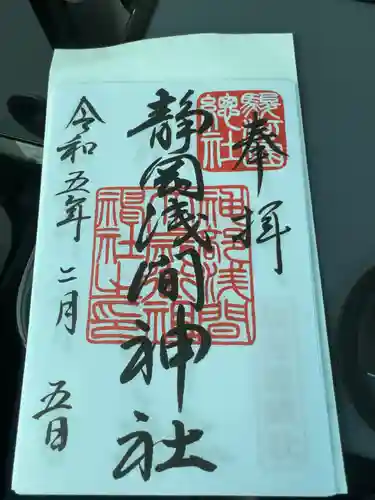 奉拝
駿河
總社
静岡浅間神社
令和五年二月五日